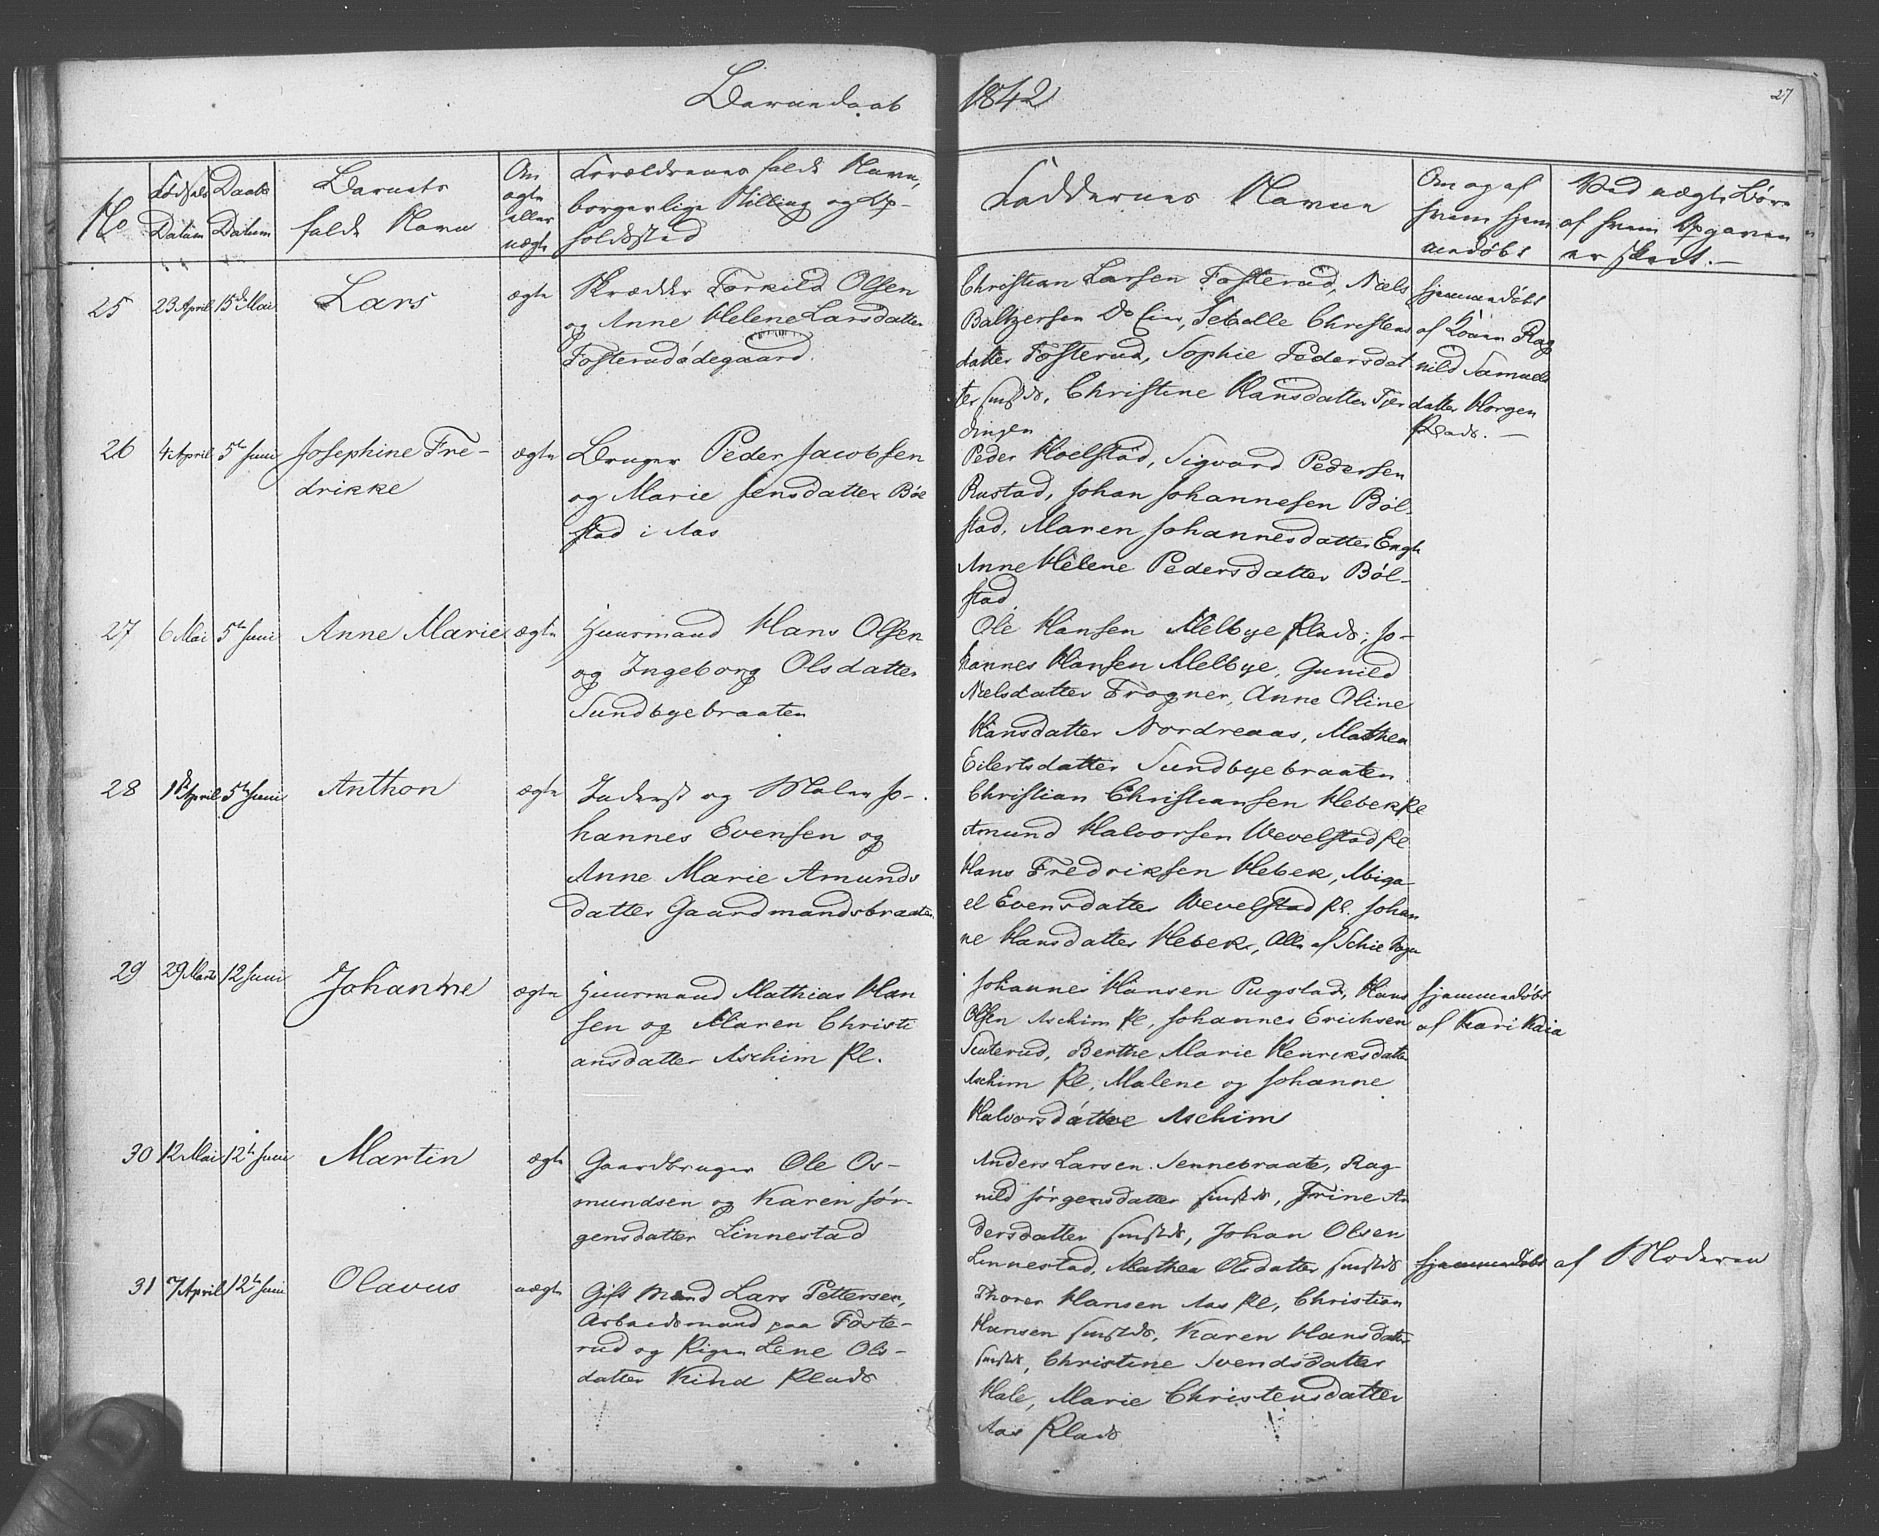 Barnedaab
1842
27
No
Fødsels
Datum
Daabs
Datum
Barnets
fulde Navn
Om
ægte
eller
uægte
Forældrenes fulde Navn,
borgerlige Stilling og Op-
holdssted
Faddernes Navne
Om og af
hvem hjem
mendøbt
Ved uægte Børn
af hvem Opgaven
er skeet.-
25
23 April
15de Mai
Lars
ægte
Skrædder Torkild Olsen
og Anne Helene Larsdatter
Fosterudødegaard.
Christian Larsen Fosterud, Niels
Baltzersen Do Eier, Sebelle Christens
datter Fosterud, Sophie Pedersdat
ter sstds, Christine Hansdatter Tjer
dingen
hjemmedøbt
af Konen Rag
nild Samuels
datter Horgen
Plads. -
26
4 April
5te Juni
Josephine Fre-
drikke
ægte
Bruger Peder Jacobsen
og Marie Jensdatter Bøl
stad i Aas
Peder Hoelstad, Sigvard Pedersen
Rustad, Johan Johannesen Bøl-
stad, Maren Johannesdatter Engh
Anne Helene Pedersdatter Bøl-
stad
27
6 Mai
5te Juni
Anne Marie
ægte
Huusmand Hans Olsen
og Ingeborg Olsdatter
Sundbyebraaten
Ole Hansen Melbye Plads, Jo-
hannes Hansen Melbye, Gunild
Nielsdatter Frogner, Anne Oline
Hansdatter Nordreaas, Mathea
Eilertsdatter Sundbyebraaten
28
1de April
5te Juni
Anthon
ægte
Inderst og Maler Jo-
hannes Evensen og
Anne Marie Amunds
datter Gaardmandsbraaten
Christian Christiansen Hebek Pl
Amund Halvorsen Wevelstad Pl
Hans Fredriksen Hebek, Abiga-
el Evensdatter Wevelstad Pl. Johan
ne Hansdatter Hebek, Alle af Schie Sogn
29
29 Marts
12 Juni
Johanne
ægte
Huusmand Mathias Han
sen og Maren Christi
ansdatter Aschim Pl.
Johannes Hansen Pugstad, Hans
Olsen Aschim Pl, Johannes Erichsen
Senterud, Berthe Marie Henriksdatter
Aschim Pl, Malene og Johanne
Halvorsdatter Aschim
hjemmedøbt
af Kari Kaia
30
12 Mai
12te Juni
Martin
ægte
Gaardbruger Ole Os-
mundsen og Karen Jør-
gensdatter Linnestad
Anders Larsen Sennebraate, Rag-
nild Jørgensdatter sstds, Trine An
dersdatter sstds, Johan Olsen
Linnestad, Mathea Olsdatter sstds
31
7 April
12te Juni
Olavus
uægte
Gift Mand Lars Pettersen,
Arbeidsmand paa Foste-
rud og Pigen Lene Ols-
datter Kind Plads
Thorer Hansen Aas Pl, Christian
Hansen sstds, Karen Hansdatter
sstds, Christine Svendsdatter
Hale, Marie Christensdatter
Aas Plads
hjemmedøbt
af Moderen